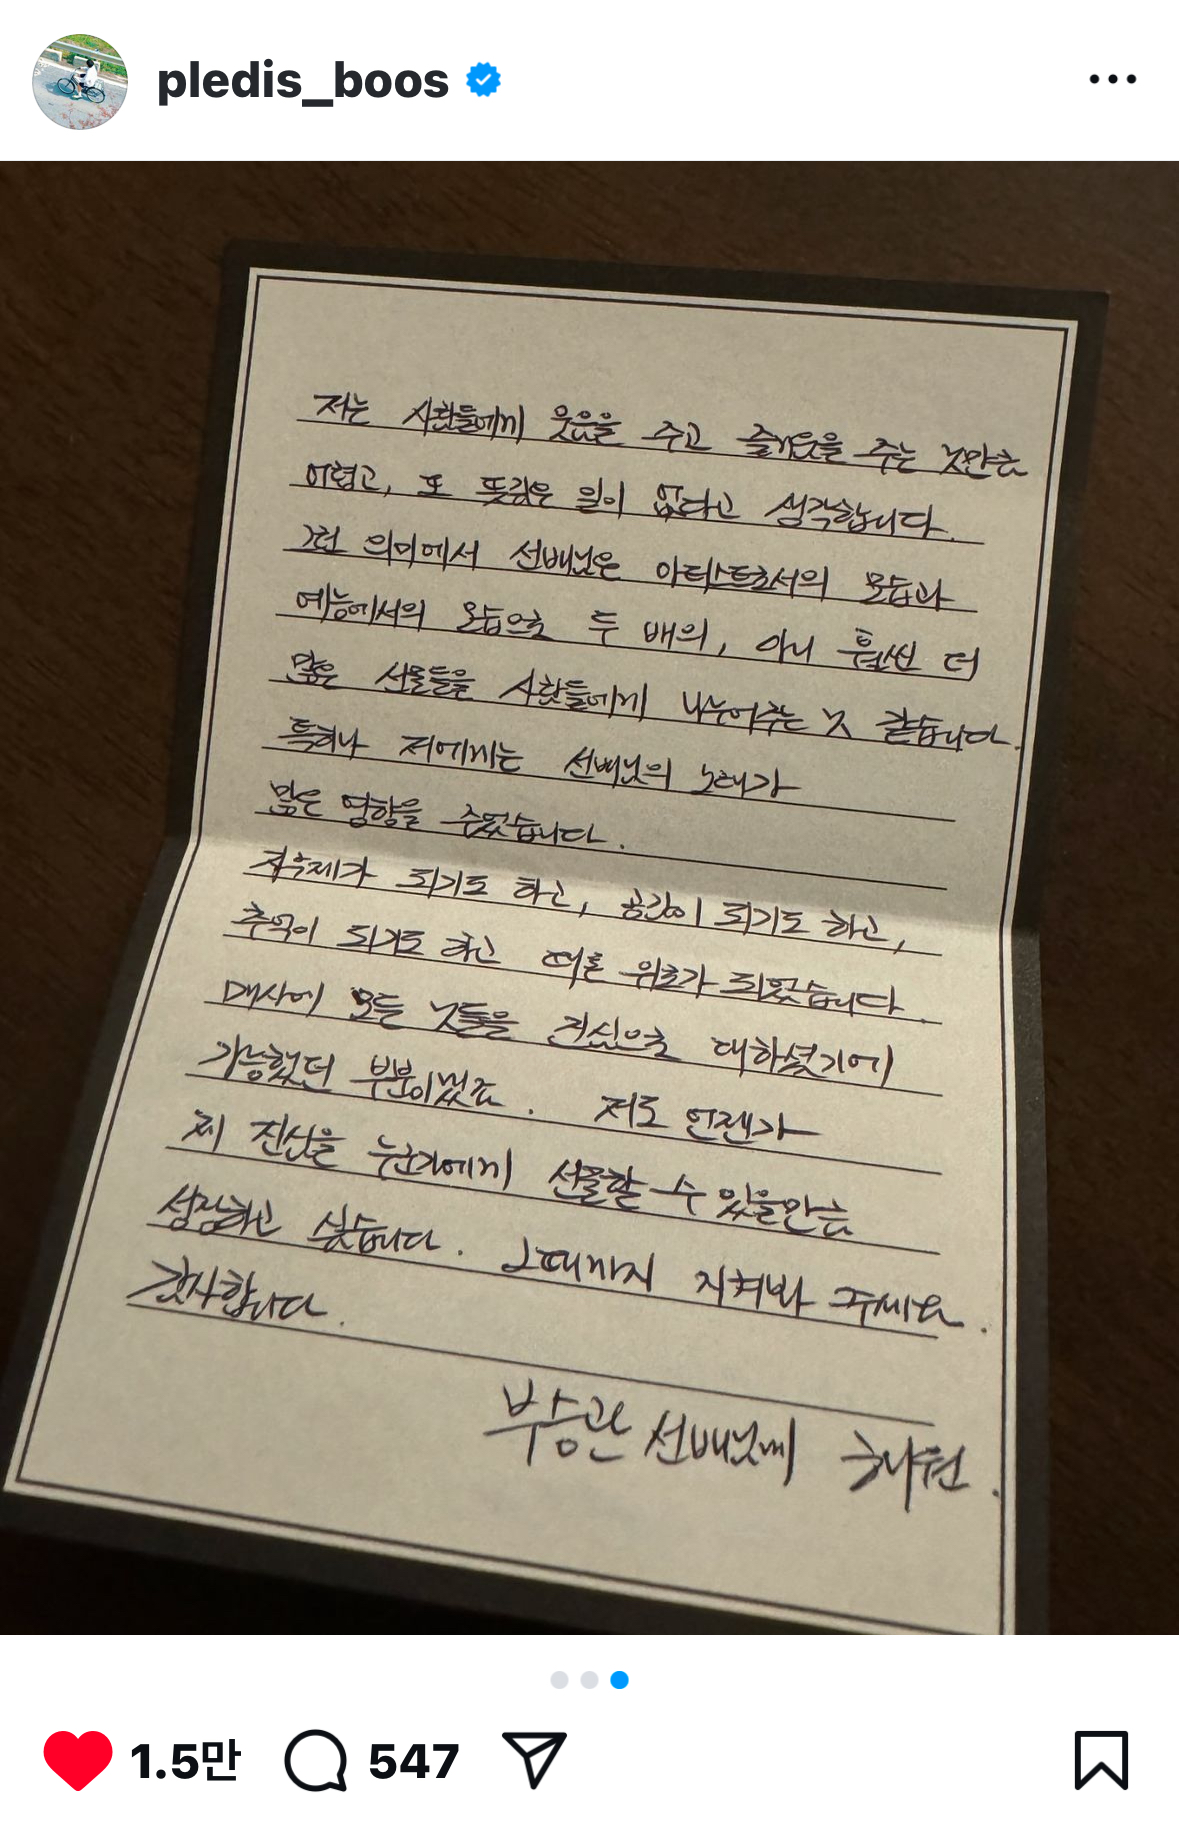 pledis_boos
저는 사람들에게 웃음을 주고 즐거움을 주는 것만큼
어렵고, 또 뜻깊은 일이 없다고 생각합니다.
그런 의미에서 선배님은 아티스트로서의 모습과
예능에서의 모습으로 두 배의, 아니 훨씬 더
많은 선물들을 사람들에게 나누어주는 것 같습니다.
특히나 저에게는 선배님의 노래가
많은 영향을 주었습니다.
자우제가 되기도 하고, 공감이 되기도 하고,
추억이 되기도 하고 때론 위로가 되었습니다.
매사에 모든 것들을 진심으로 대하셨기에
가능했던 부분이겠죠. 저도 언젠가
제 진심을 누군가에게 선물할 수 있을만큼
성장하고 싶습니다. 그때까지 지켜봐 주세요.
감사합니다.
부승관 선배님께
1.5만 547